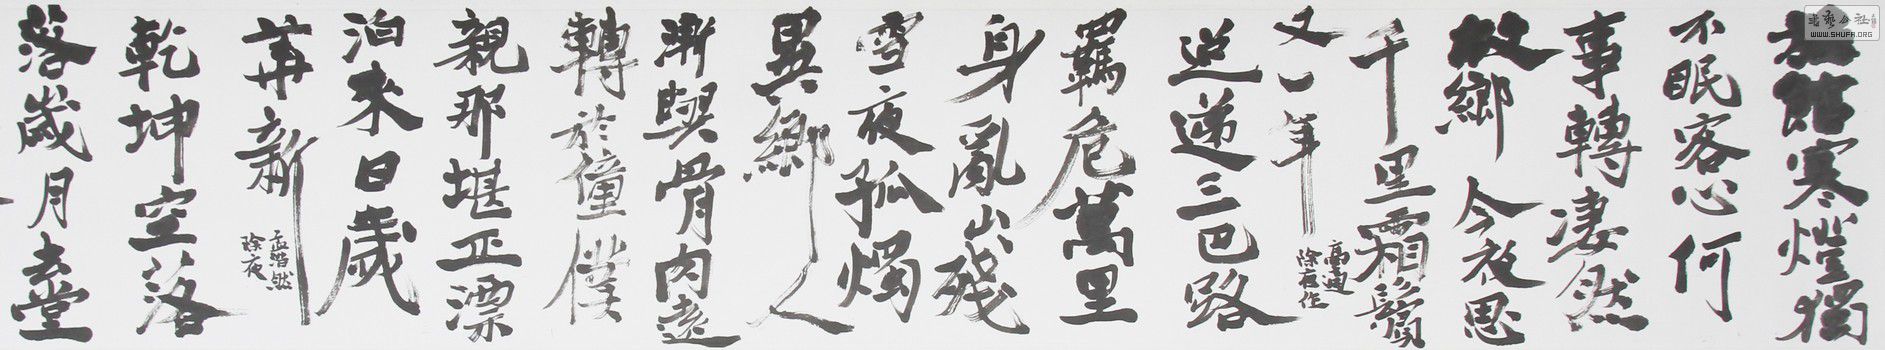 旅館寒燈獨
不眠客心何
事轉凄然
故鄉今夜思
千里霜鬢
又一年
高適
除夜作
迢递三巴路
羈危萬里
身亂山殘
雪夜孤燭
異鄉人
漸與骨肉遠
轉於僮僕
親那堪正漂
泊來日歲
華新
孟浩然
除夜
乾坤空落
落歲月去堂
書藝公社
WWW.SHUFA.ORG